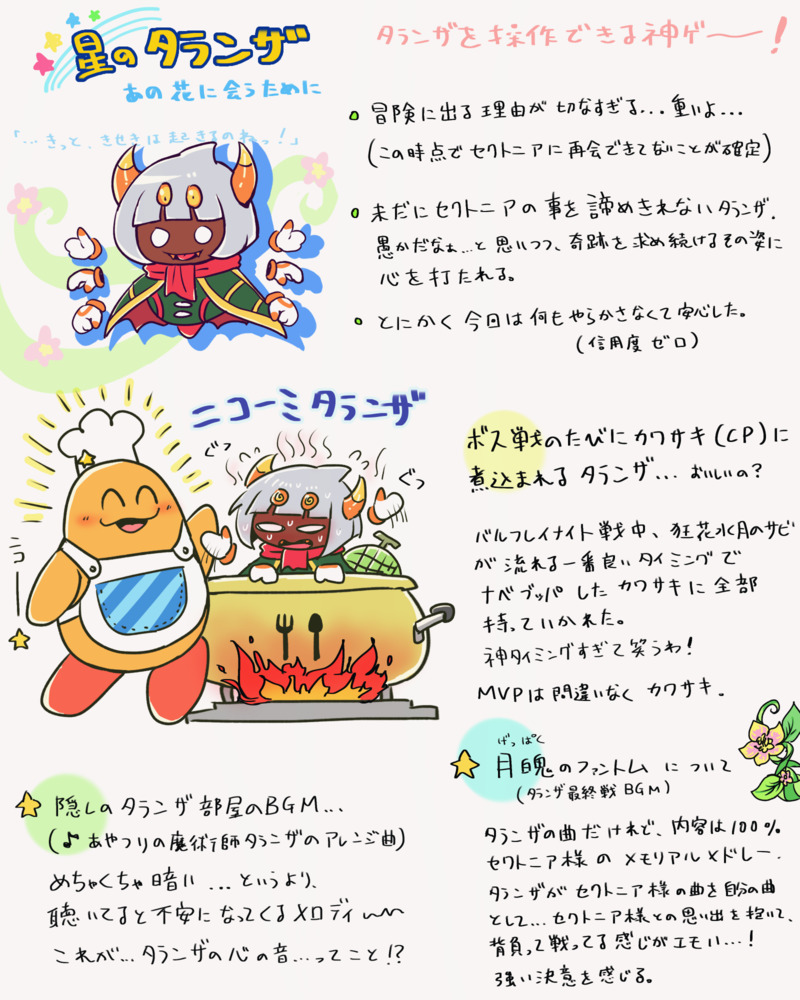 星のタランザ
あの花に会うために
「…きっと、きせきは起きるのねっ!」
タランザを操作できる神ゲー!
冒険に出る理由が切なすぎる…重いよ…
(この時点でセクトニアに再会できてないことが確定)
未だにセクトニアの事を諦めきれないタランザ。
愚かだなぁ…と思いつつ、奇跡を求め続けるその姿に
心を打たれる。
とにかく今日は何もやらかさなくて安心した。
(信用度ゼロ)
ニコーミタランザ
ぐっ
ぐっ
ニコー
ボス戦のたびにカワサキ(CP)に
煮込まれるタランザ…おいしいの?
バルフレイナイト戦中、狂花水月のサビ
が流れる一番良いタイミングで
ナベブッパしたカワサキに全部
持っていかれた。
神タイミングすぎて笑うわ!
MVPは間違いなくカワサキ。
隠しのタランザ部屋のBGM…
(♪あやつりの魔術師タランザのアレンジ曲)
めちゃくちゃ暗い…というより、
聴いてると不安になってくるメロディ〜〜
これが…タランザの心の音…ってこと!?
げっぱく
月白鬼のファントムについて
(タランザ最終戦BGM)
タランザの曲だけれど、内容は100%
セクトニア様のメモリアルメドレー。
タランザがセクトニア様の曲を自分の曲
として…セクトニア様との思い出を抱いて、
背負って戦ってる感じがエモい…!
強い決意を感じる。